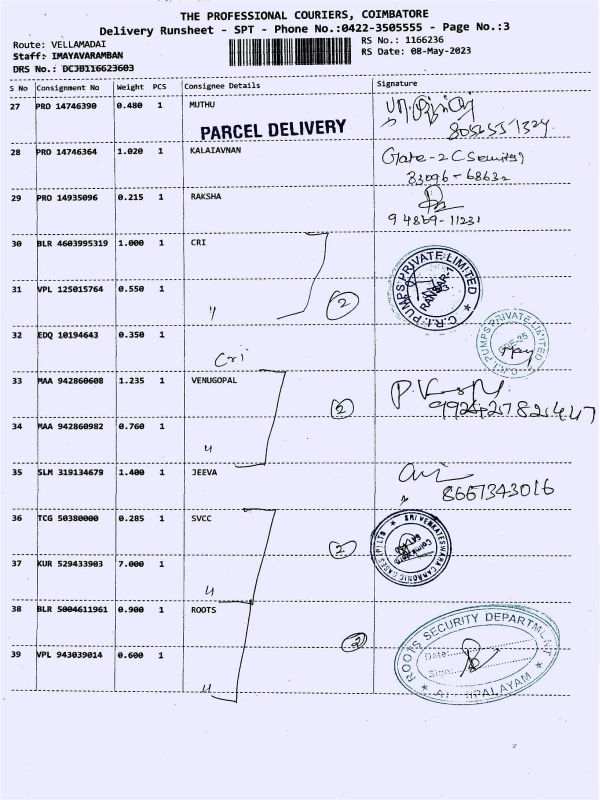 THE PROFESSIONAL COURIERS, COIMBATORE
Delivery Runsheet - SPT - Phone No.:0422-3505555 - Page No.:3
Route: VELLAMADAI RS No.: 1166236
Staff: IMAYAVARAMBAN RS Date: 08-May-2023
DRS No.: DCJB116623603
S No Consignment No Weight PCS Consignee Details Signature
27 PRO 14746390 0.480 1 MUTHU
PARCEL DELIVERY
28 PRO 14746364 1.020 1 KALAIAVNAN Gate-2 C Security
83096-68632
29 PRO 14935096 0.215 1 RAKSHA
94869-11231
30 BLR 4603995319 1.000 1 CRI
C.R.I. PUMPS PRIVATE LIMITED
31 VPL 125015764 0.550 1 〃 2
32 EDQ 10194643 0.350 1 Cri
C.R.I. PUMPS PRIVATE LIMITED
33 MAA 942860608 1.235 1 VENUGOPAL 2
34 MAA 942860982 0.760 1 〃
35 SLM 319134679 1.400 1 JEEVA
8667343016
36 TCG 50380000 0.285 1 SVCC 2
SRI VENKATESWARA CARBONIC GASES (P) LTD
37 KUR 529433903 7.000 1 〃
38 BLR 5004611961 0.900 1 ROOTS 2
ROOTS SECURITY DEPARTMENT
Date:
Sign:
39 VPL 943039014 0.600 1 〃
2